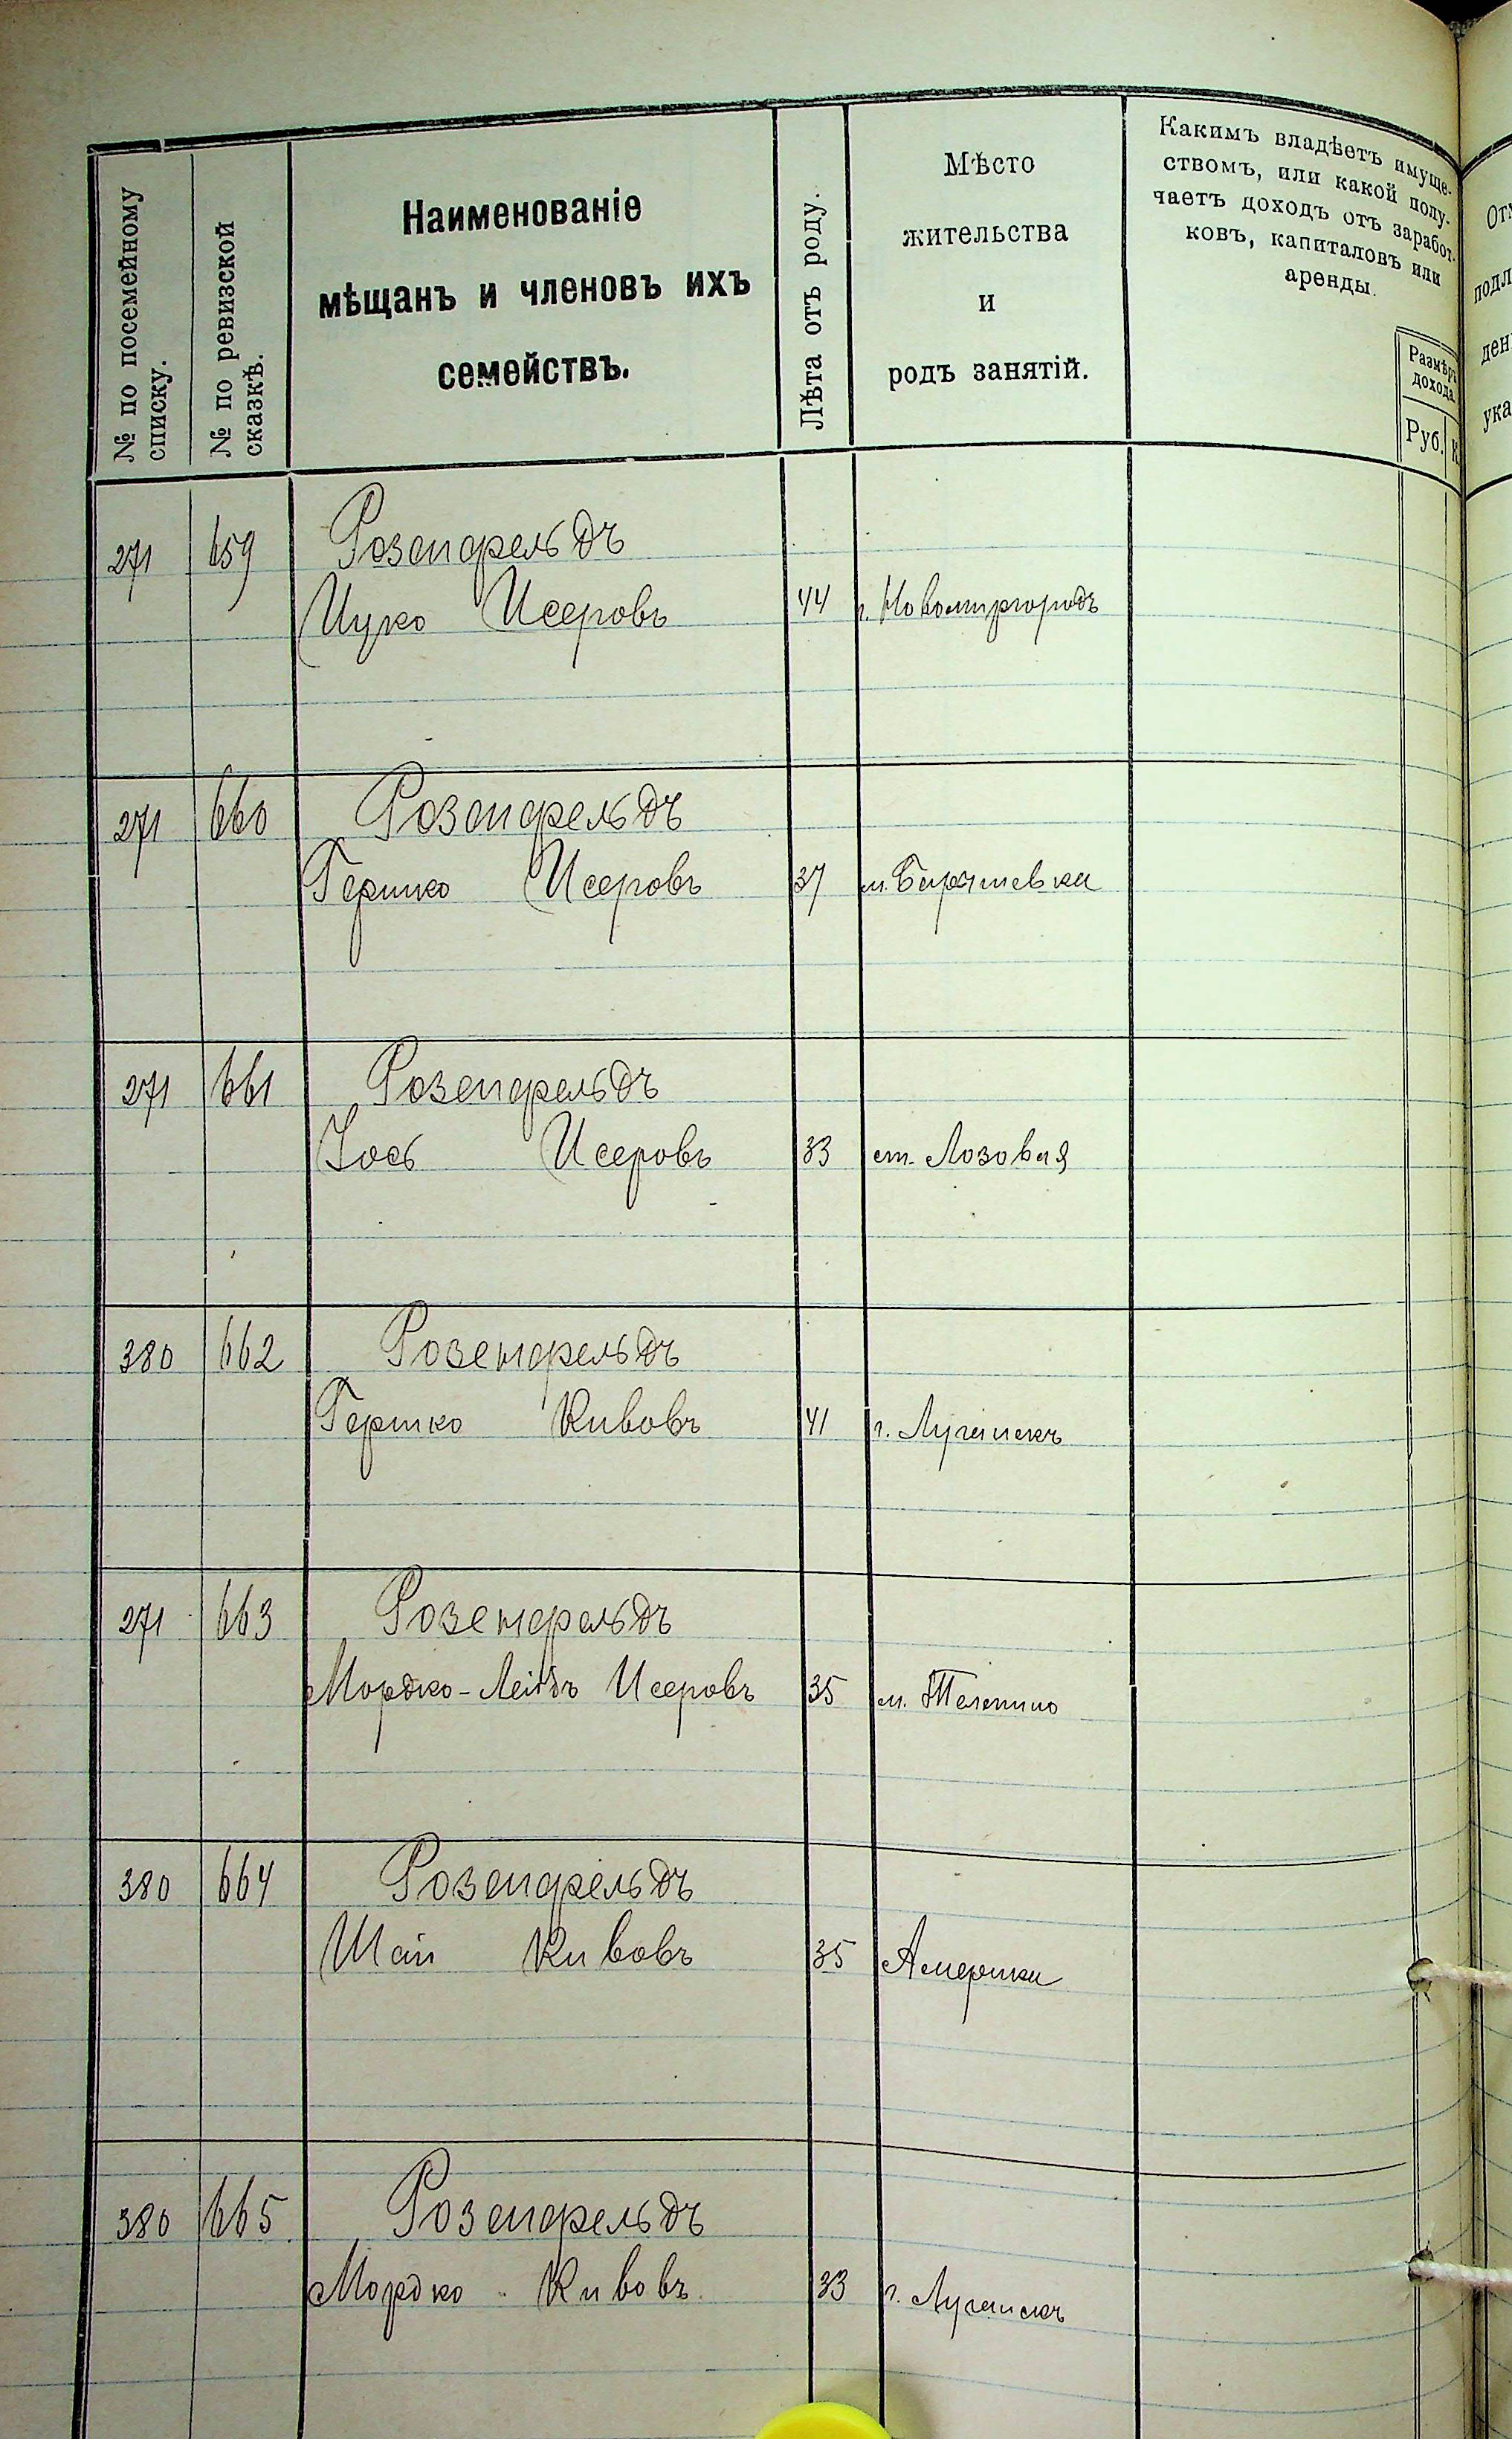 № по посемейному
списку.
№ по ревизской
сказкѣ.
Наименованіе
мѣщанъ и членовъ ихъ
семействъ.
Лѣта отъ роду.
Мѣсто
жительства
и
родъ занятій.
Какимъ владѣетъ имуще-
ствомъ, или какой полу-
чаетъ доходъ отъ заработ-
ковъ, капиталовъ или
аренды.
Размѣръ
дохода.
Руб. К.
271 659 Розенфельдъ
Ицко Исеровъ 44 г. Новомиргородъ
271 660 Розенфельдъ
Гершко Исеровъ 37 м.
271 661 Розенфельдъ
Іось Исеровъ 33 ст. Лозовая
380 662 Розенфельдъ
Гершко Кивовъ 41 г. Луганскъ
271 663 Розенфельдъ
Мордко-Лейбъ Исеровъ 35 м. Телепино
380 664 Розенфельдъ
Шая Кивовъ 35 Америка
380 665 Розенфельдъ
Мордко Кивовъ 33 г. Луганскъ